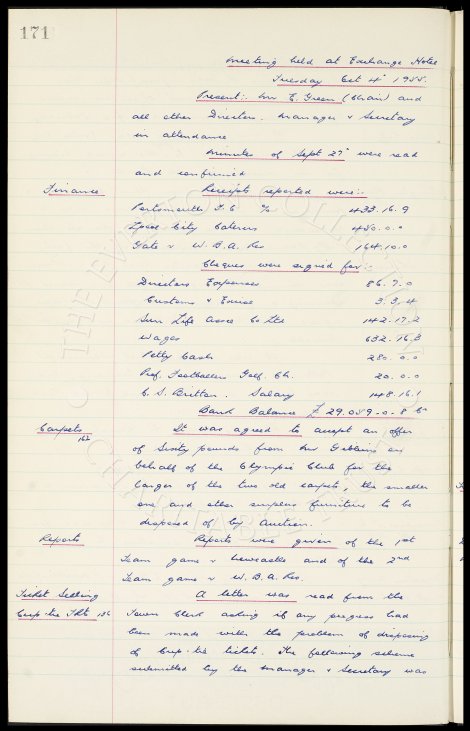 171
Meeting held at Exchange Hotel
Tuesday Oct 4th 1955.
Present:- Mr E. Green (Chair) and
all other Directors. Manager & Secretary
in attendance
Minutes of Sept 27th were read
and confirmed
Finance
Receipts reported were:-
Portsmouth F.C. % 433.16.9
L'pool City Caterers 450.0.0
Gate v W.B.A. Res 164.10.0
Cheques were signed for:-
Directors Expenses 86.7.0
Customs & Excise 3.3.4
Sun Life Assce Co Ltd 142.17.2
Wages 632.16.3
Petty Cash 280.0.0
Prof. Footballers Golf. Ch. 20.0.0
C. S. Britton. Salary 148.16.1
Bank Balance £ 29.059.0.8
Carpets
162
It was agreed to accept an offer
of Sixty pounds from Mr Gibbins on
behalf of the Olympic Club for the
larger of the two old carpets, the smaller
one and other surplus furniture to be
disposed of by Auction.
Reports
Reports were given of the 1st
Team game v Newcastle and of the 2nd
Team game v W.B.A. Res.
Ticket Selling
Cup-tie Tkts 156
A letter was read from the
Town Clerk asking if any progress had
been made with the problem of disposing
of Cup-tie tickets. The following scheme
submitted by the Manager & Secretary was
© THE EVERTON COLLECTION
CHARITABLE